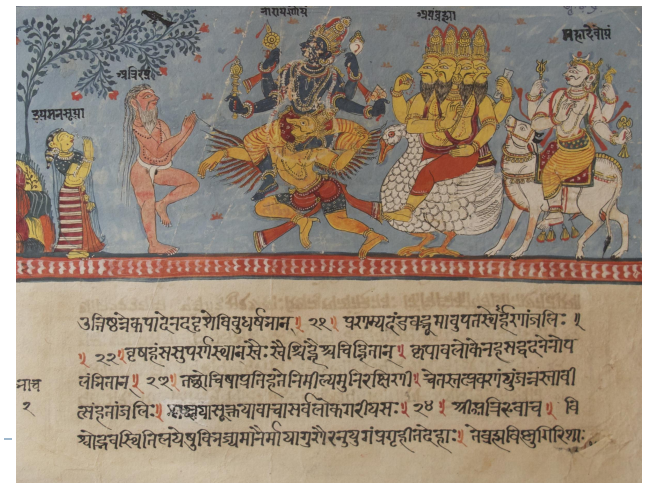 नारायणोयं
अयंब्रह्मा
महादेवोयं
अत्रिरयं
इयमनसूया
उत्तिष्ठन्नेकपादेनददृशेविबुधर्षभान् ॥ २१ ॥ प्रणम्यदंडवद्भूमावुपतस्थेर्हणांजलिः ॥
॥ २२ ॥ वृषहंससुपर्णस्थान्स्वैःस्वैश्चिह्नैश्चचिह्नितान् ॥ कृपावलोकेनहसद्वदनेनोप
लंभितान् ॥ २३ ॥ तद्रोचिषाप्रतिहतेनिमील्यमुनिरक्षिणी ॥ चेतस्तत्प्रवणंयुंजन्नस्तावी
त्संहतांजलिः ॥ श्लक्ष्णयासूक्तयावाचासर्वलोकगरीयसः ॥ २४ ॥ श्रीअत्रिरुवाच ॥ वि
श्वोद्भवस्थितिलयेषुविभज्यमानैर्मायागुणैरनुयुगंप्रगृहीतदेहाः ॥ तेब्रह्मविष्णुगिरिशाः